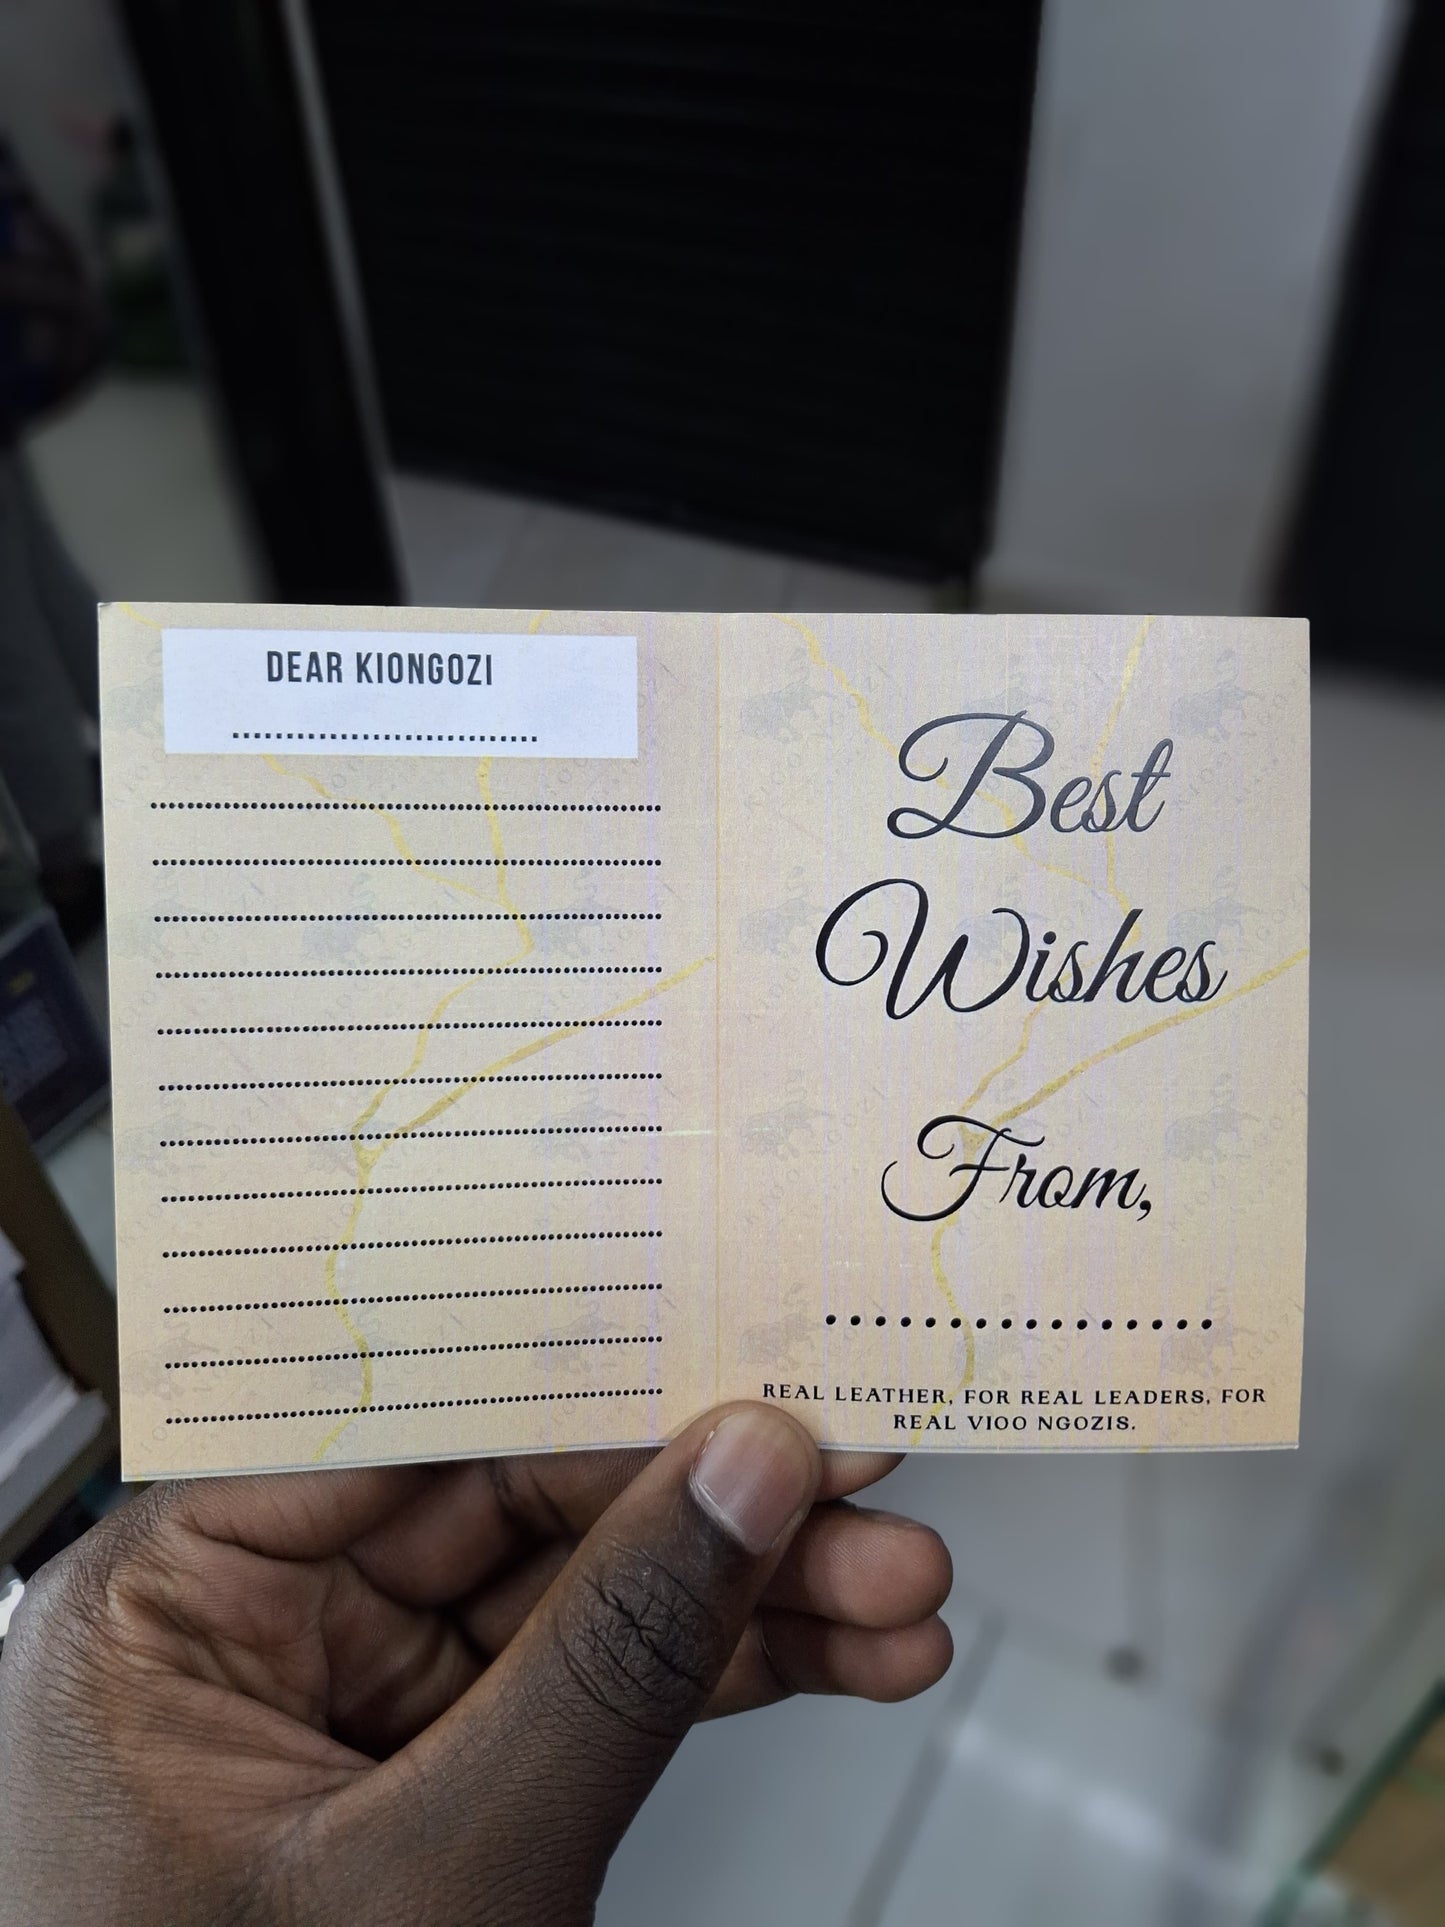 DEAR KIONGOZI
Best
Wishes
From,
REAL LEATHER, FOR REAL LEADERS, FOR
REAL VIOO NGOZIS.